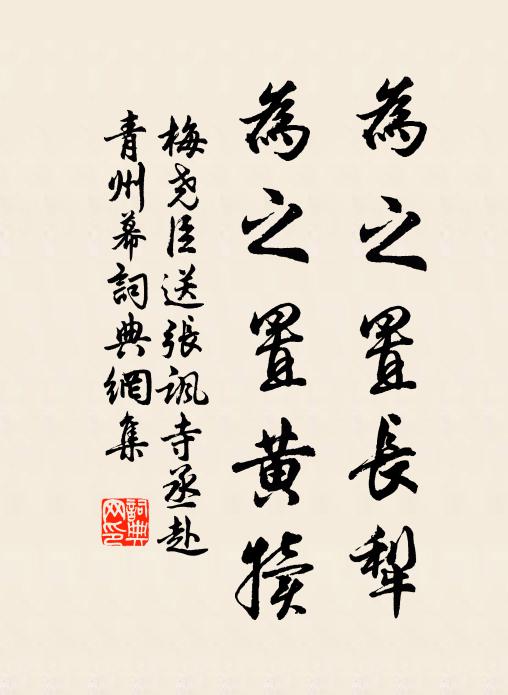 為之置長犁
為之置黃犢
梅堯臣送張諷寺丞赴
青州幕詞典網集
詞典网印